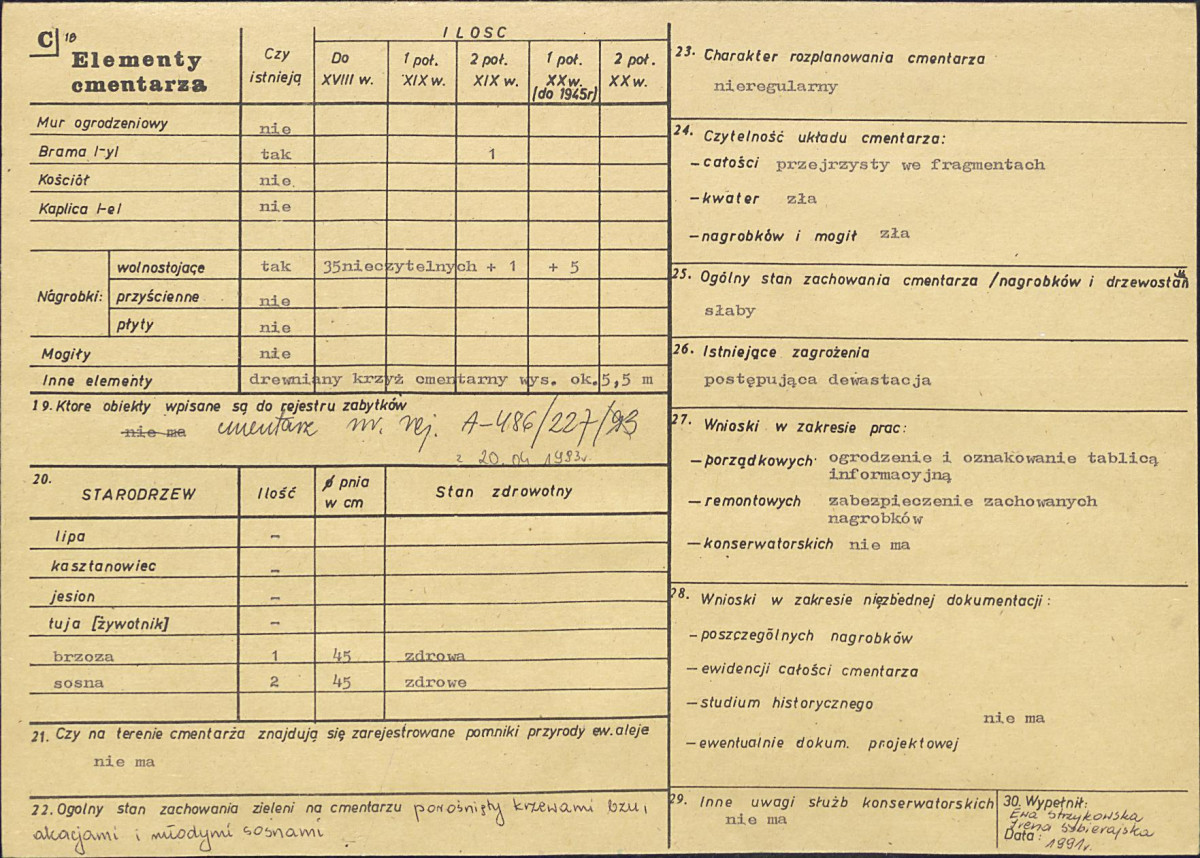 C 18
Elementy cmentarza
Czy istnieją
ILOSC
Do XVIII w.
1 poł. XIX w.
2 poł. XIX w.
1 poł. XX w. (do 1945r)
2 poł. XX w.
Mur ogrodzeniowy nie
Brama /-y/ tak 1
Kościół nie
Kaplica /-e/ nie
Nagrobki:
wolnostojące tak 35nieczytelnych + 1 + 5
przyścienne nie
płyty nie
Mogiły nie
Inne elementy drewniany krzyż cmentarny wys. ok.5,5 m
19. Ktore obiekty wpisane są do rejestru zabytków
nie ma cmentarz nr. rej. A-486/227/93
z 20.04 1993r.
20. STARODRZEW Ilość ø pnia w cm Stan zdrowotny
lipa –
kasztanowiec –
jesion –
tuja [żywotnik] –
brzoza 1 45 zdrowa
sosna 2 45 zdrowe
21. Czy na terenie cmentarza znajdują się zarejestrowane pomniki przyrody ew. aleje
nie ma
22. Ogolny stan zachowania zieleni na cmentarzu porośnięty krzewami bzu,
akacjami i młodymi sosnami
23. Charakter rozplanowania cmentarza
nieregularny
24. Czytelność układu cmentarza:
– całości przejrzysty we fragmentach
– kwater zła
– nagrobków i mogił zła
25. Ogólny stan zachowania cmentarza /nagrobków i drzewostan
słaby
26. Istniejące zagrożenia
postępująca dewastacja
27. Wnioski w zakresie prac:
– porządkowych ogrodzenie i oznakowanie tablicą
informacyjną
– remontowych zabezpieczenie zachowanych
nagrobków
– konserwatorskich nie ma
28. Wnioski w zakresie nięzbednej dokumentacji:
– poszczególnych nagrobków
– ewidencji całości cmentarza
– studium historycznego
nie ma
– ewentualnie dokum. projektowej
29. Inne uwagi służb konserwatorskich
nie ma
30. Wypełnił:
Ewa Strzykowska
Irena Sobierajska
Data: 1991r.